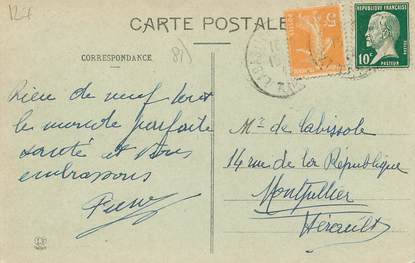 124
CARTE POSTALE
CORRESPONDANCE
81)
Rien de neuf tout
le monde parfaite
santé et vous
embrassons
5c
RÉPUBLIQUE FRANÇAISE
10c
PASTEUR
POSTES
Mr de Labissole
14 rue de la République
Montpellier
Hérault